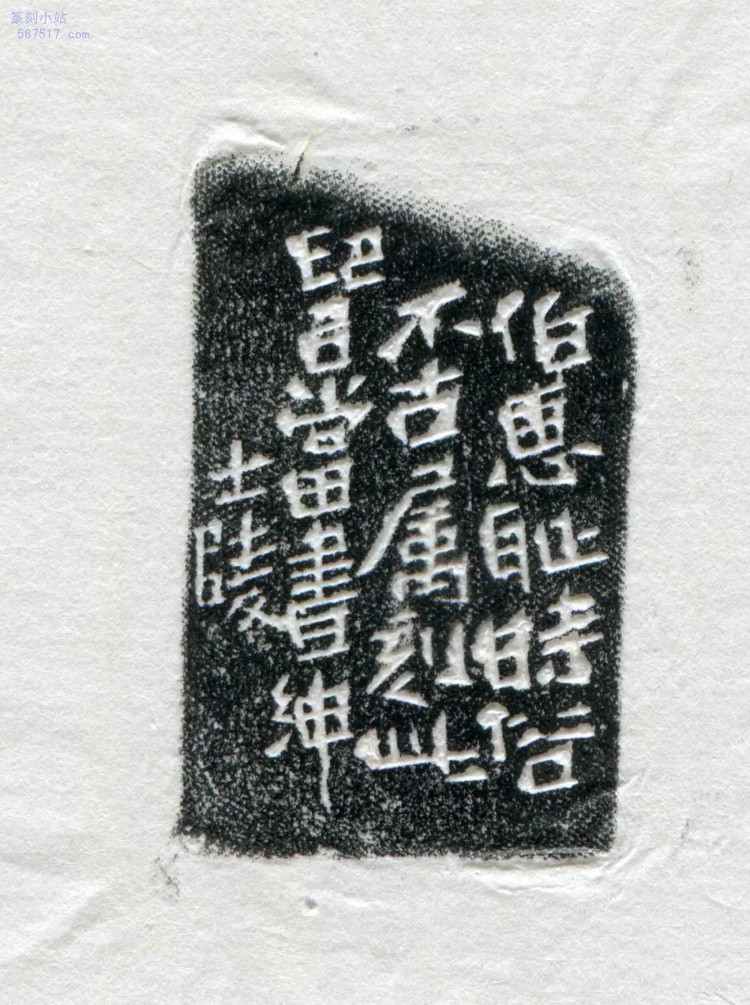 篆刻小站
567517.com
伯惠耻時信
不吉属刻此
印、當書紳
士陵